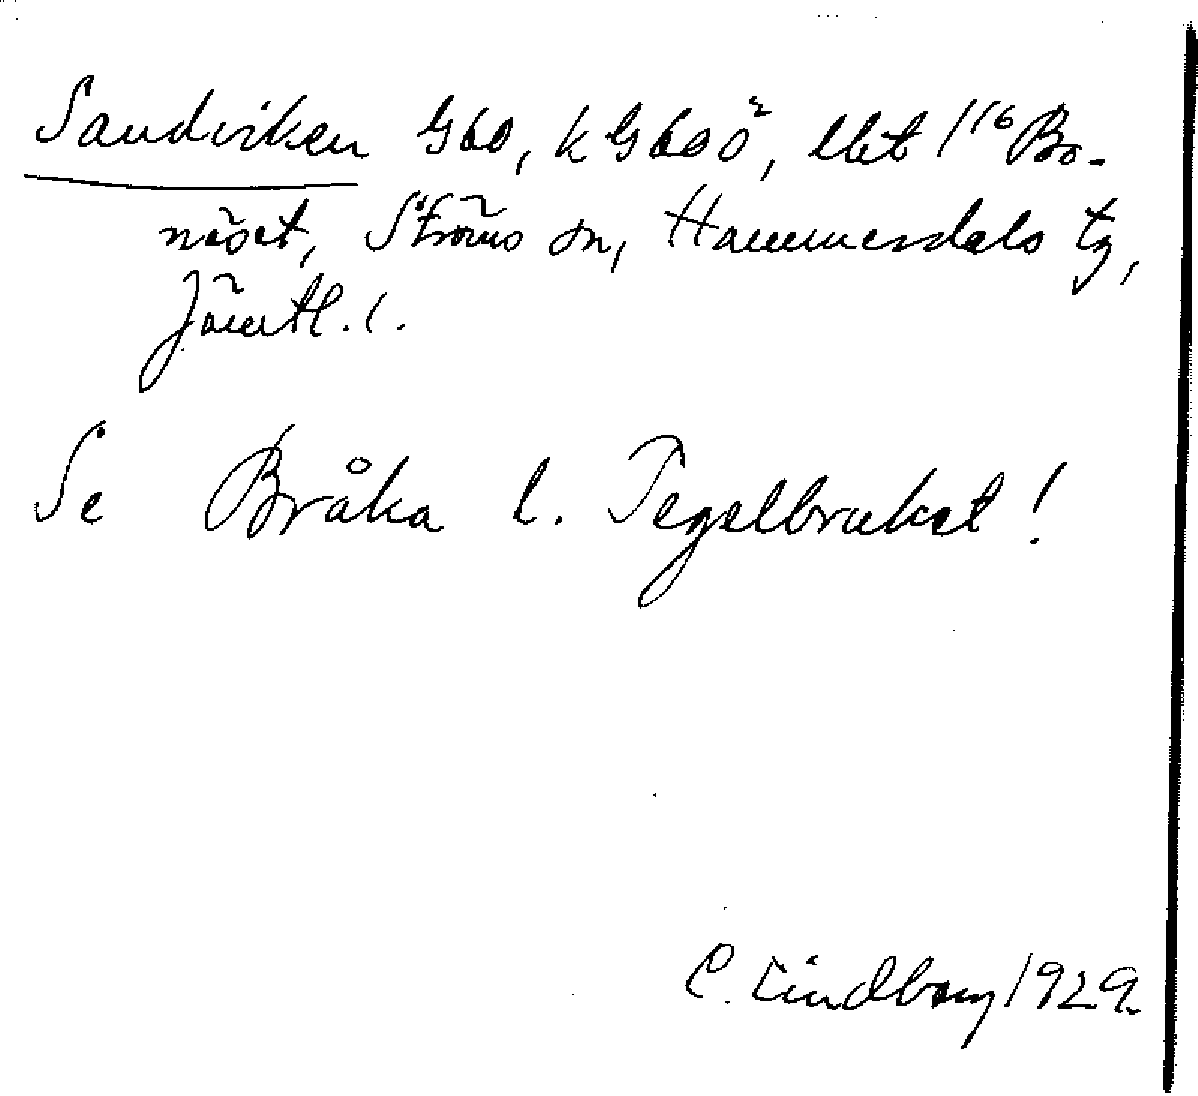 Sandviken G60, k G600², lbt 1/16 Bo-
näset, Ströms sn, Hammerdals tg,
Jämtl. l.
Se Bråka l. Tegelbruket!
C. Lindberg 1929.